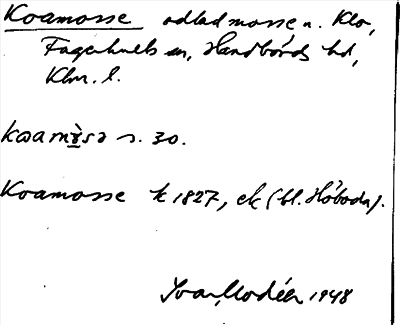 Koamosse odlad mosse n. Klo,
Fagerhults sn, Handbörds hd,
Klm. l.
kωamɤ̀sə s. 30.
Koamosse k 1827, ek (bl. Höboda).
Ivar Modéer 1948